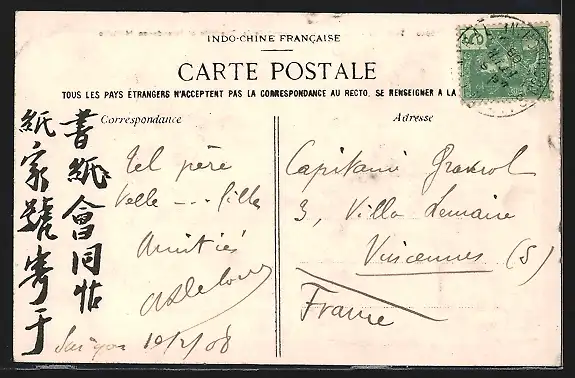 INDO-CHINE FRANÇAISE
CARTE POSTALE
TOUS LES PAYS ÉTRANGERS N'ACCEPTENT PAS LA CORRESPONDANCE AU RECTO. SE RENSEIGNER A LA
Correspondance
Adresse
書紙會同帖
紙家號寄于
Tel père
Velle --- fille
Amitiés
Saïgon 10/2/08
Capitaine
3, Villa Lemaire
Vincennes (S)
France